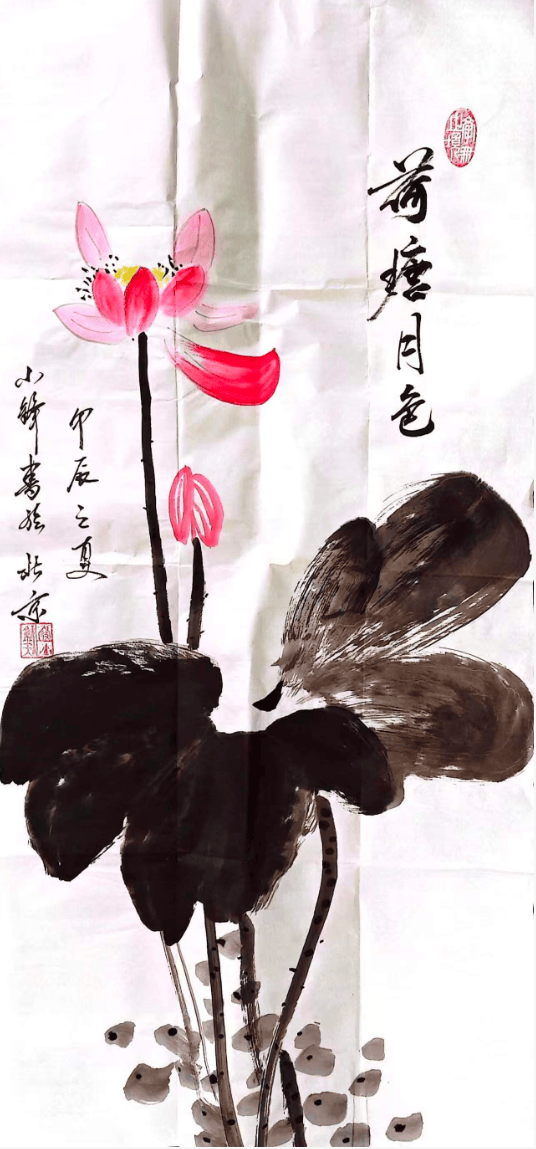 荷塘月色
甲辰之夏
小锋書於北京